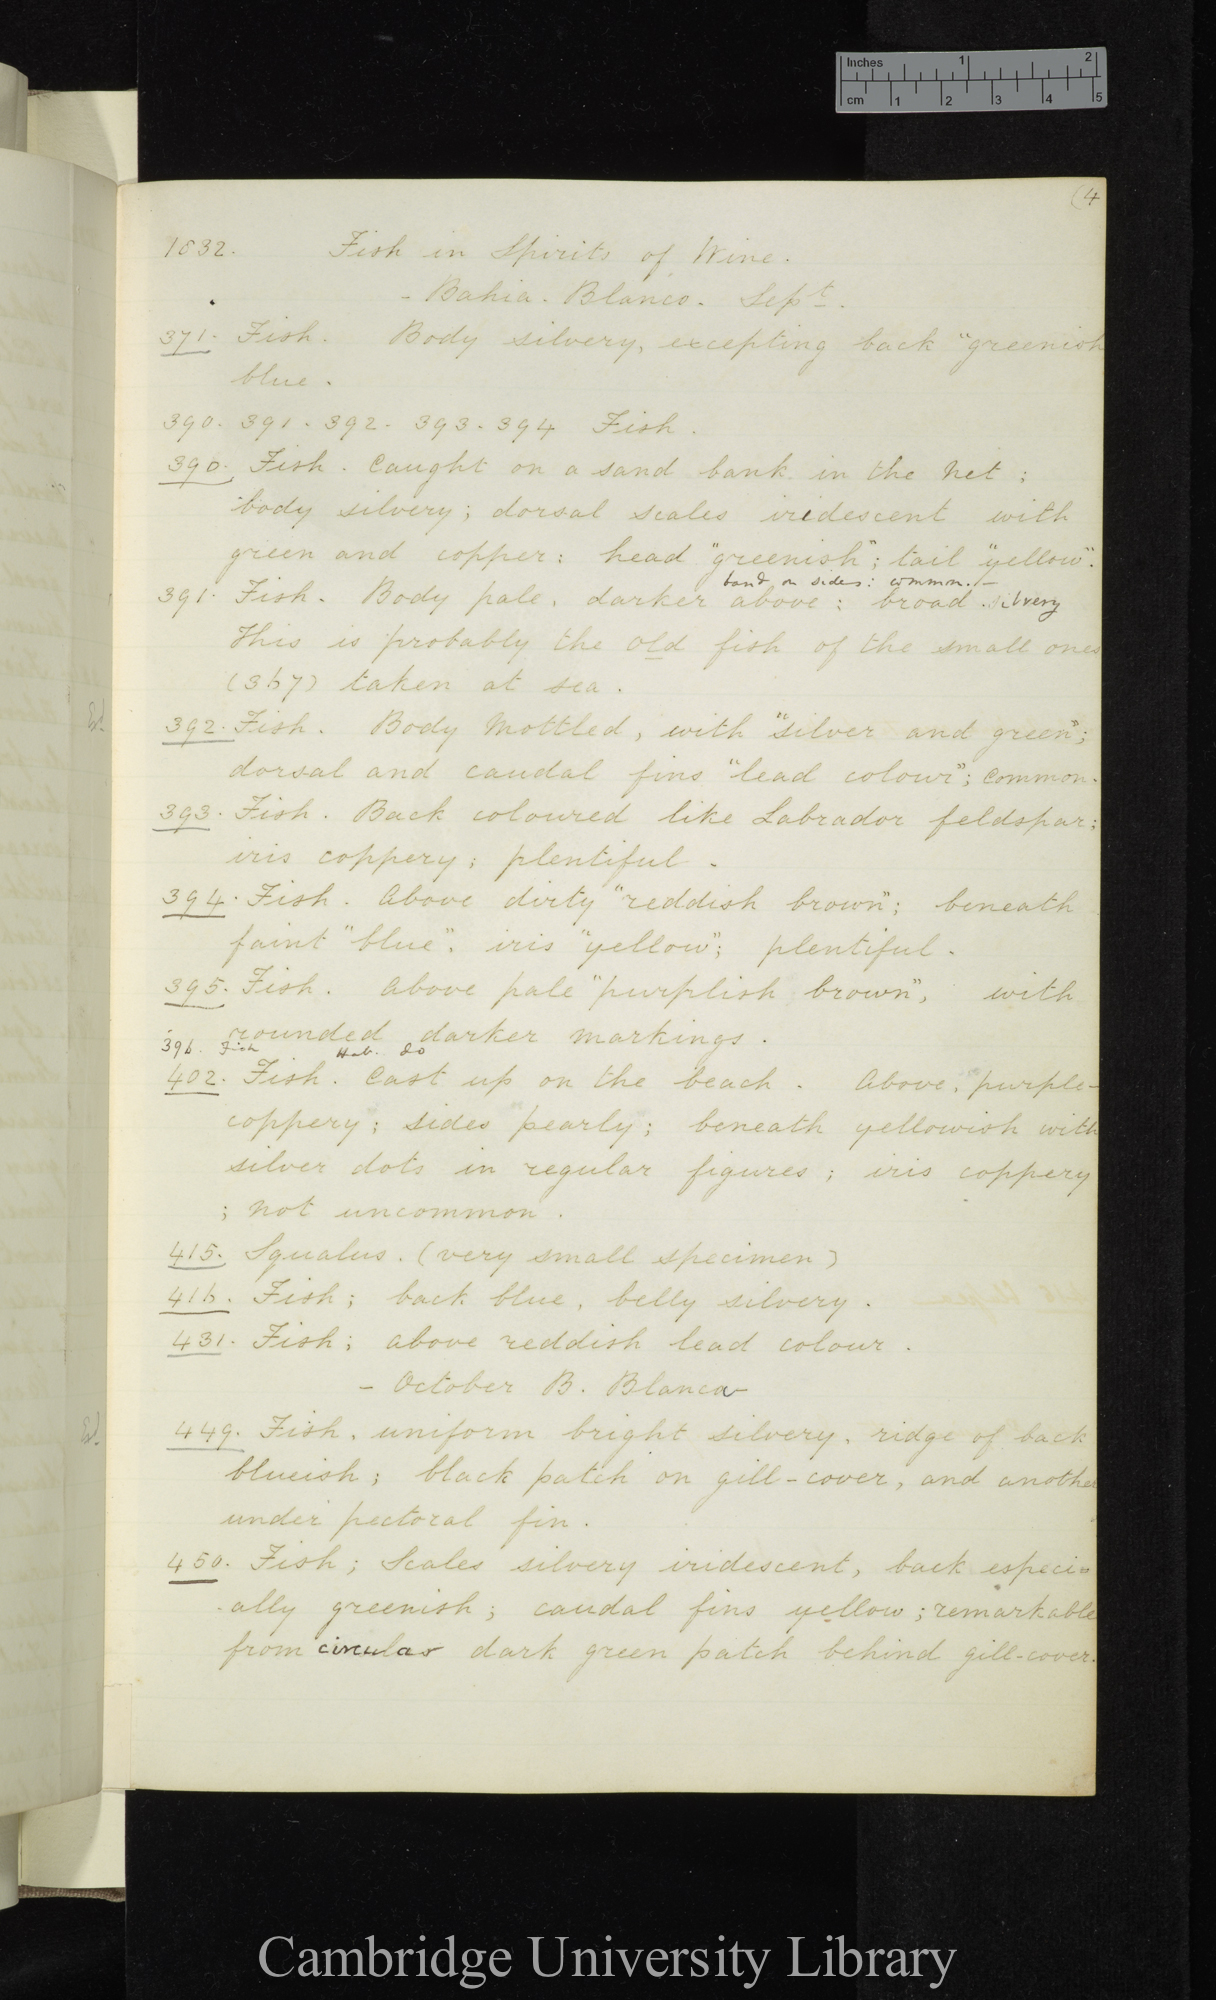 Inches 1 2
cm 1 2 3 4 5
(4
1832. Fish in Spirits of Wine.
- Bahia. Blanco. Sept.
371. Fish. Body silvery, excepting back "greenish
blue.
390. 391. 392. 393. 394 Fish.
390. Fish. Caught on a sand bank in the net;
body silvery; dorsal scales iridescent with
green and copper: head "greenish"; tail "yellow".
band on sides: common. -
391. Fish. Body pale, darker above: broad silvery
This is probably the old fish of the small ones
(367) taken at sea.
392. Fish. Body Mottled, with "silver and green";
dorsal and caudal fins "lead colour"; common.
393. Fish. Back coloured like Labrador feldspar;
iris coppery; plentiful.
394. Fish. Above dirty "reddish brown"; beneath
faint "blue". iris "yellow"; plentiful.
395. Fish. Above pale "purplish brown", with
rounded darker markings.
396. Fish Hab. do
402. Fish. Cast up on the beach. Above, purple-
coppery; sides pearly; beneath yellowish with
silver dots in regular figures; iris coppery
; not uncommon.
415. Squalus. (very small specimen)
416. Fish; back blue, belly silvery.
431. Fish; above reddish lead colour.
- October B. Blanca
449. Fish, uniform bright silvery, ridge of back
blueish; black patch on gill-cover, and another
under pectoral fin.
450. Fish; Scales silvery iridescent, back especi=
-ally greenish; caudal fins yellow; remarkable
from circular dark green patch behind gill-cover.
Cambridge University Library